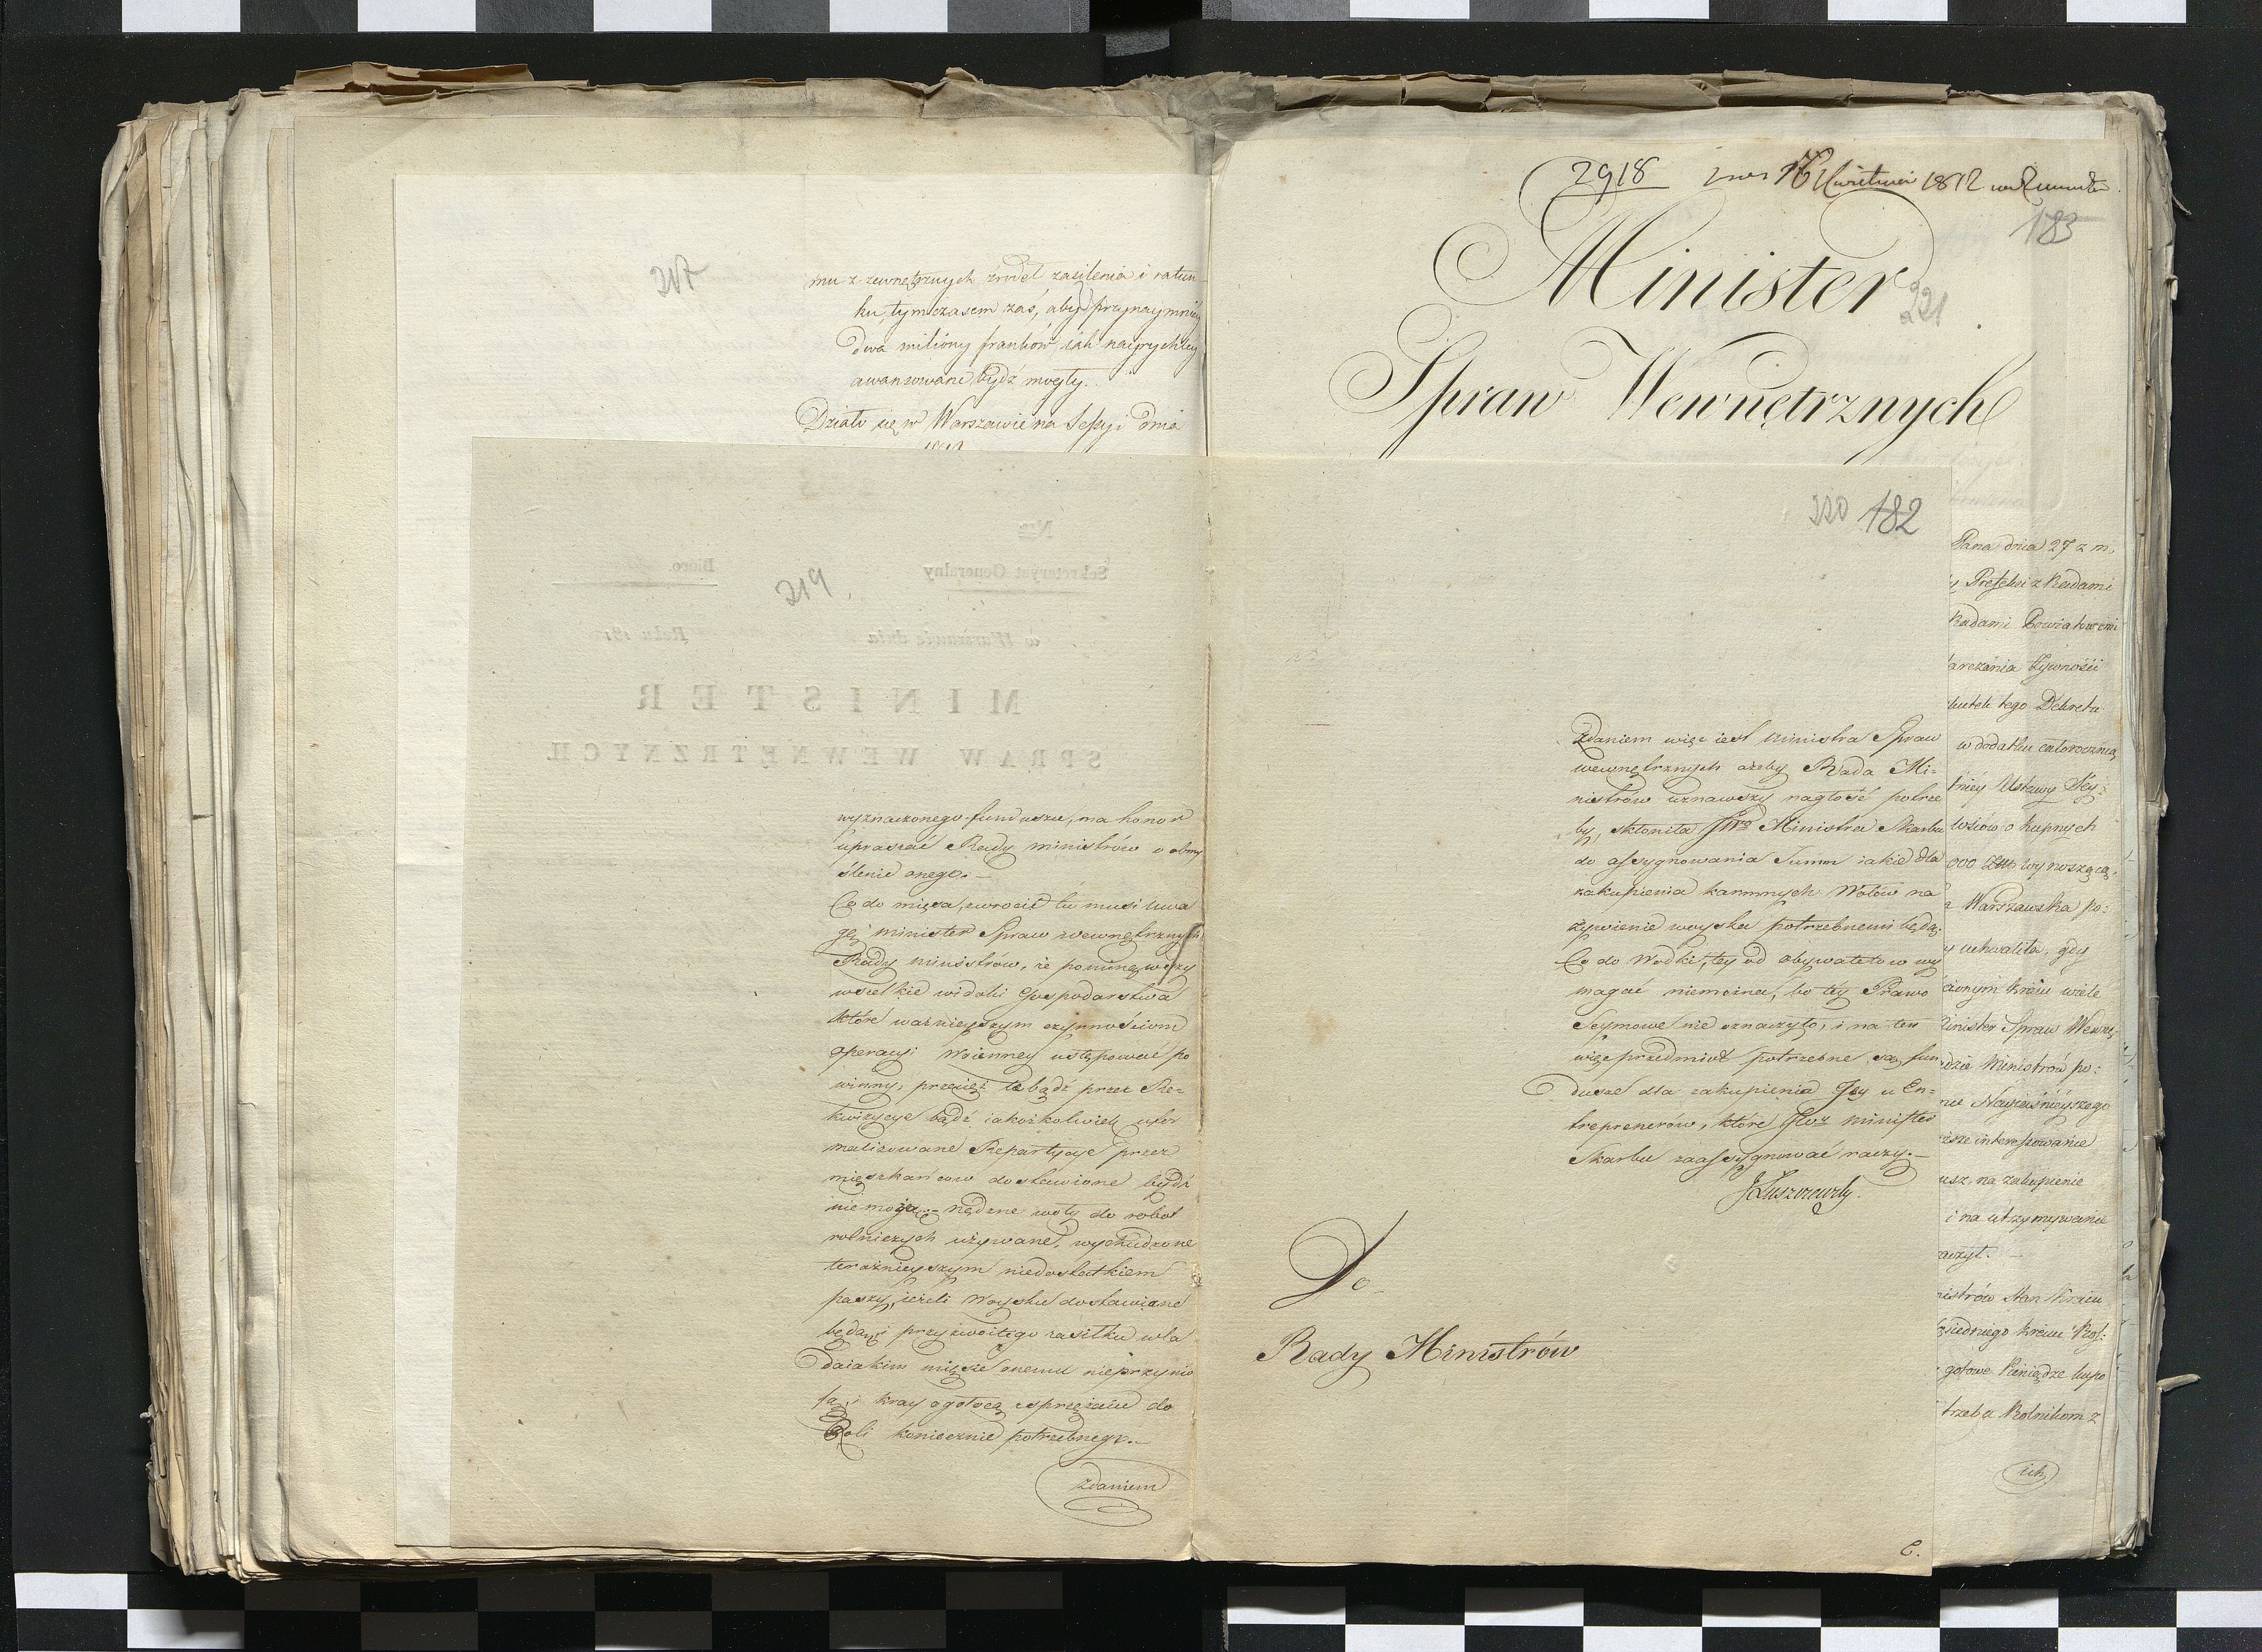 217
mu z zewnętrznych źrudeł zasilenia i ratun
ku, tymczasem zaś, aby przynaymniéy
dwa miliony franków iak nayprędzéy
awansowane bydź mogły.
Działo się w Warszawie na Sessyi dnia
219
wyznaczonego funduszu, ma honor
upraszać Rady Ministrów o obmy
ślenie onego.—
Co do mięsa, zwrocić tu musi uwa
gę Minister Spraw wewnętrznych
Rady Ministrów, że pominąwszy
wszelkie widoki Gospodarstwa
które ważnieyszym czynnościom
operacyi Woienney ustępować po
winny, przecięż te bądź przez Re=
kwizycye bądź iakożkolwiek ufor
malizowane Repartycye przez
mięszkańcow dostawione bydź
nie mogą.— nędzne woły do robot
rolniczych używane, wychudzone
teraźnieyszym niedostatkiem
paszy, ieżeli Woysku dostawiane
będą, i przyzwoitego zasiłku w ła
daiakim mięsie onemu nieprzynio
są, i kray ogołocą z sprzężaiu do
Roli koniecznie potrzebnego.—
Zdaniem
2918 17 Kwietnia 1812
183
Minister
221
Spraw Wewnętrznych
220 182
Zdaniem więc iest Ministra Spraw
wewnętrznych ażeby Rada Mi=
nistrów uznawszy nagłość potrze
by, skłoniła JWo Ministra Skarbu
do assygnowania Summ iakie dla
zakupienia karmnych Wołów na
żywienie woyska potrzebnemi będą.
Co do Wodki, tey od obywatelow wy
magać niemożna, bo tey Prawo
Seymowe nie oznaczyło, i na ten
więc przedmiot potrzebne są fun
dusze dla zakupienia Jey u En=
treprenerów, które JW Minister
Skarbu zaassygnować raczy.—
JŁuszczewski.
Do
Rady Ministrów
C.
Pana dnia 27 z m.
Prefekci z Radami
Radami Powiatowemi
arczania Żywności
skutek tego Dekretu
w dodatku całoroczną
tniéy Ustawy Séy:
łosiów o kupnych
000 wynoszącą.
Warszawska po:
y uchwaliła, gdy
cionym kraiu wiele
Minister Spraw Wewnę.
adzie Ministrów po:
Nayiaśnieyszego
sze interessowanie
usz na zakupienie
i na utrzymywanie
aczył.—
nistrów Stan Kraiu
ąsiedniego kraiu Ros:
gotowe Pieniądze kupo
trzeba Rolnikom z
ich